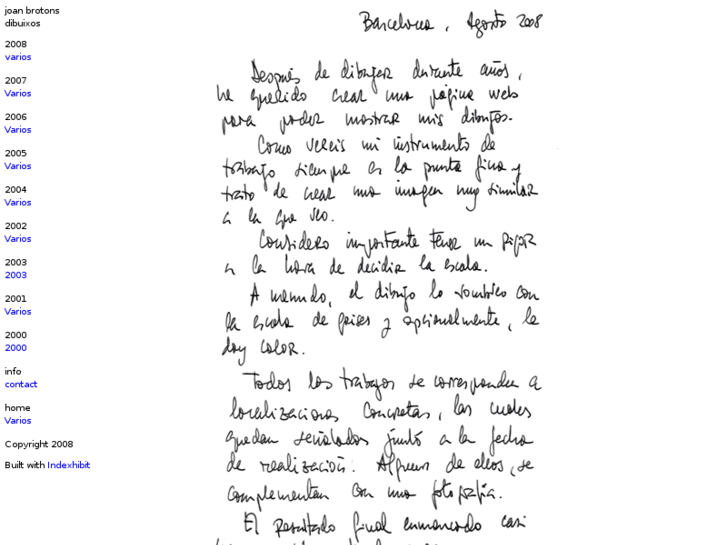 joan brotons
dibuixos
2008
varios
2007
Varios
2006
Varios
2005
Varios
2004
Varios
2002
Varios
2003
2003
2001
Varios
2000
2000
info
contact
home
Varios
Copyright 2008
Built with Indexhibit
Barcelona, Agosto 2008
Después de dibujar durante años,
he querido crear una página web
para poder mostrar mis dibujos.
Como vereis mi instrumento de
trabajo siempre es la punta fina y
trato de crear una imagen muy similar
a la que veo.
Considero importante tener un
a la hora de decidir la escala.
A menudo, el dibujo lo sombreo con
la escala de grises y opcionalmente, le
doy color.
Todos los trabajos se corresponden a
localizaciones concretas, las cuales
quedan señalados junto a la fecha
de realización. Algunos de ellos, se
complementan con una fotografía.
El resultado final enmarcado casi